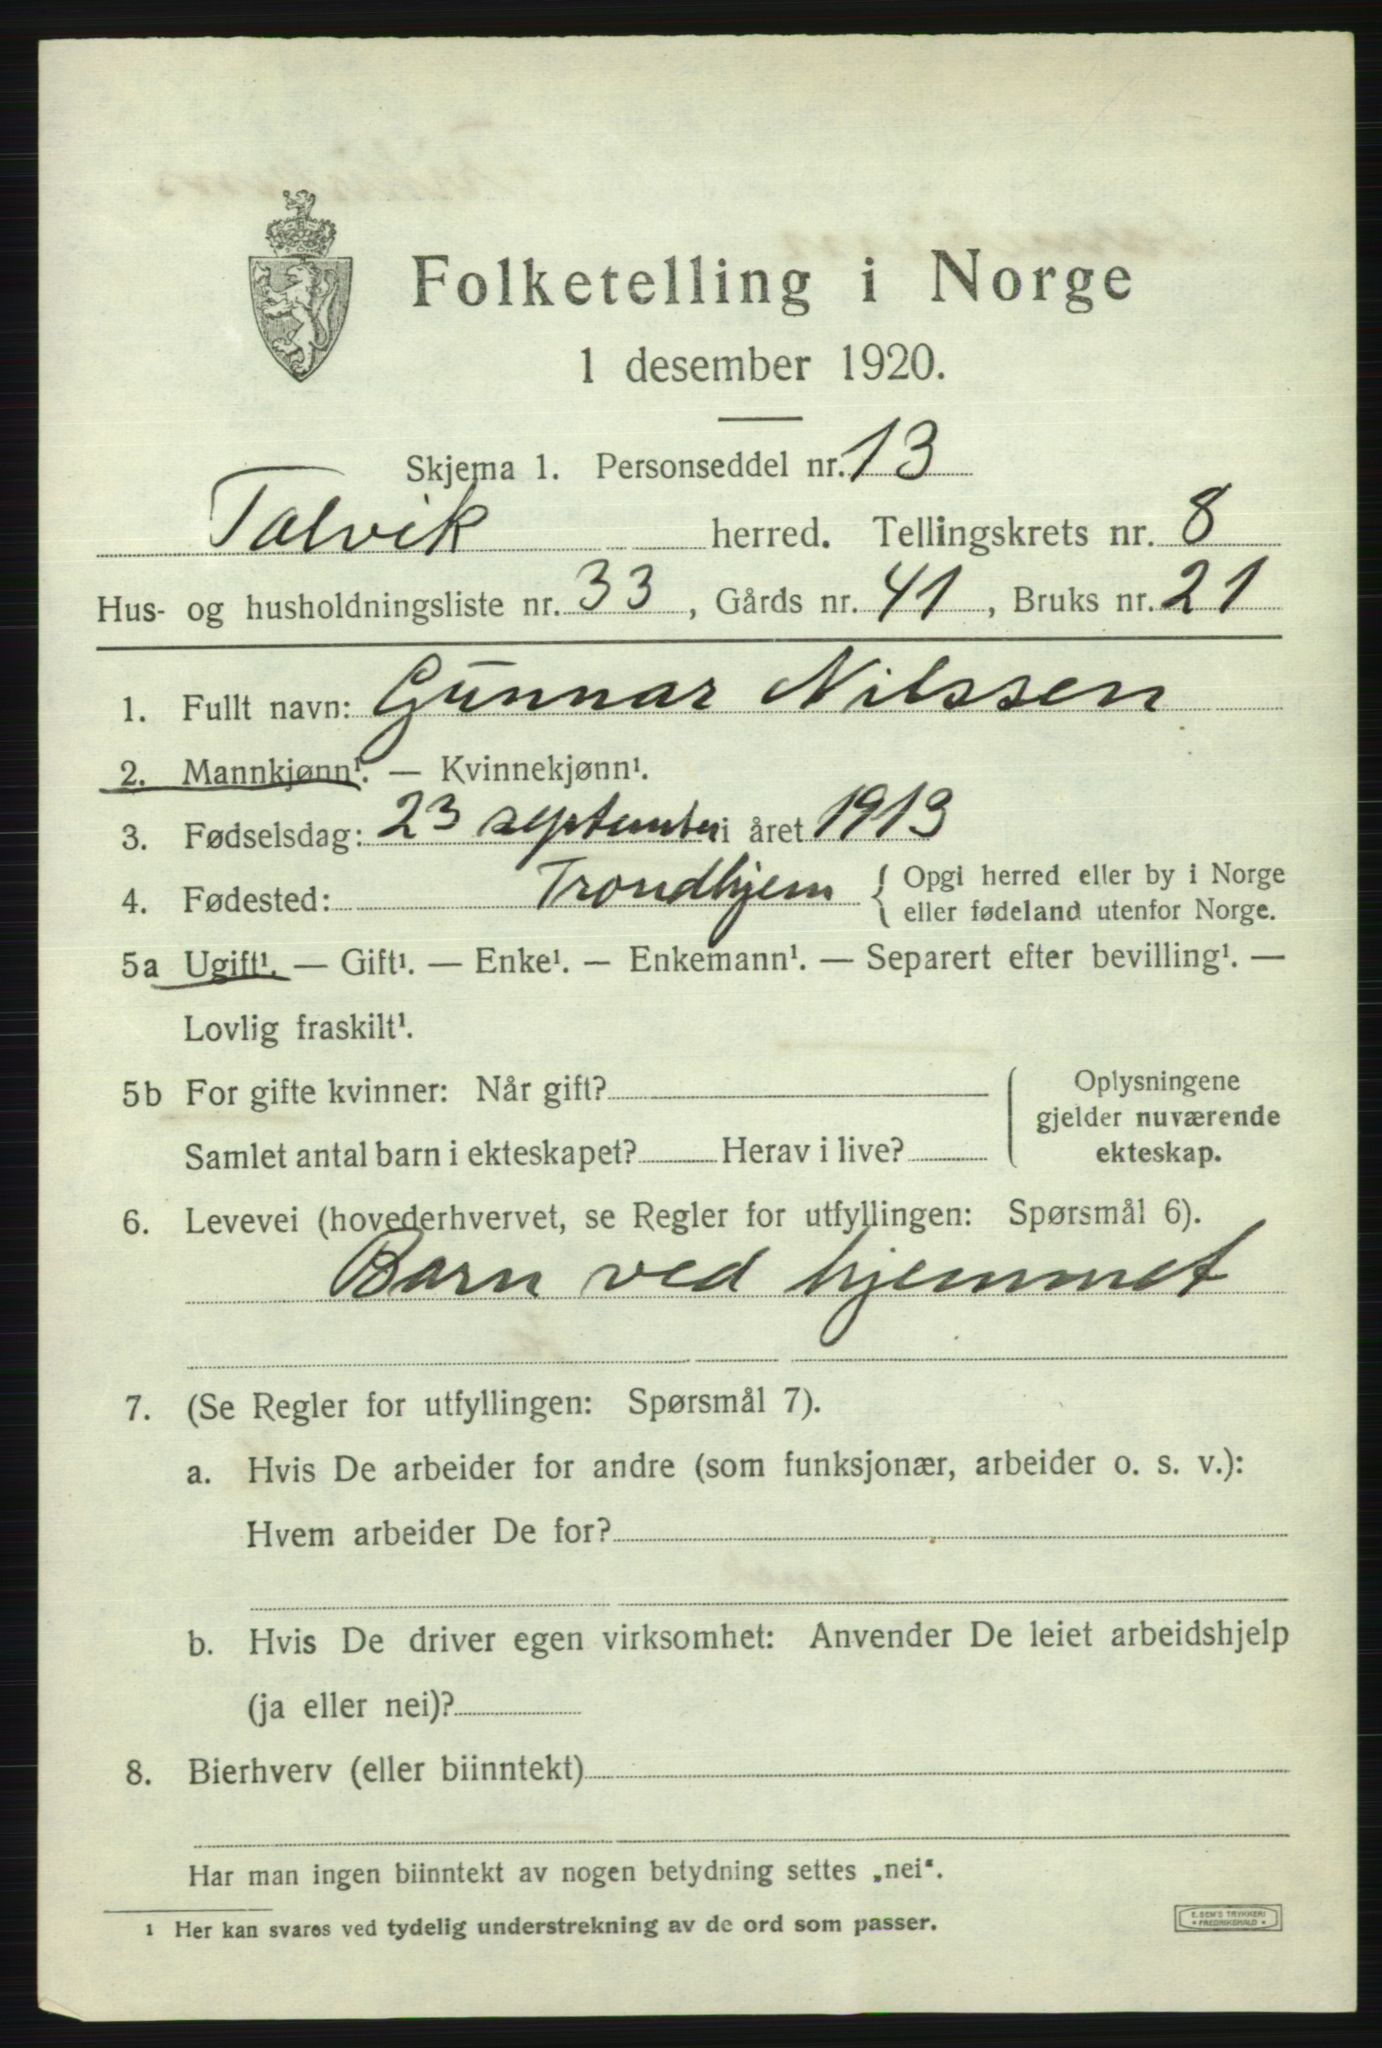 Folketelling i Norge
1 desember 1920.
Skjema 1. Personseddel nr. 13
Talvik herred. Tellingskrets nr. 8
Hus- og husholdningsliste nr. 33, Gårds nr. 41, Bruks nr. 21
1. Fullt navn: Gunnar Nilssen
2. Mannkjønn¹. — Kvinnekjønn¹.
3. Fødselsdag: 23 september i året 1913
4. Fødested: Trondhjem { Opgi herred eller by i Norge
eller fødeland utenfor Norge.
5a Ugift¹. — Gift¹. — Enke¹. — Enkemann¹. — Separert efter bevilling¹. —
Lovlig fraskilt¹.
5b For gifte kvinner: Når gift?
Samlet antal barn i ekteskapet? Herav i live?
( Oplysningene
gjelder nuværende
ekteskap.
6. Levevei (hovederhvervet, se Regler for utfyllingen: Spørsmål 6).
Barn ved hjemmet
7. (Se Regler for utfyllingen: Spørsmål 7).
a. Hvis De arbeider for andre (som funksjonær, arbeider o. s. v.):
Hvem arbeider De for?
b. Hvis De driver egen virksomhet: Anvender De leiet arbeidshjelp
(ja eller nei)?
8. Bierhverv (eller biinntekt)
Har man ingen biinntekt av nogen betydning settes „nei“.
¹ Her kan svares ved tydelig understrekning av de ord som passer.
E. SEM'S TRYKKERI
• FREDRIKSHALD •